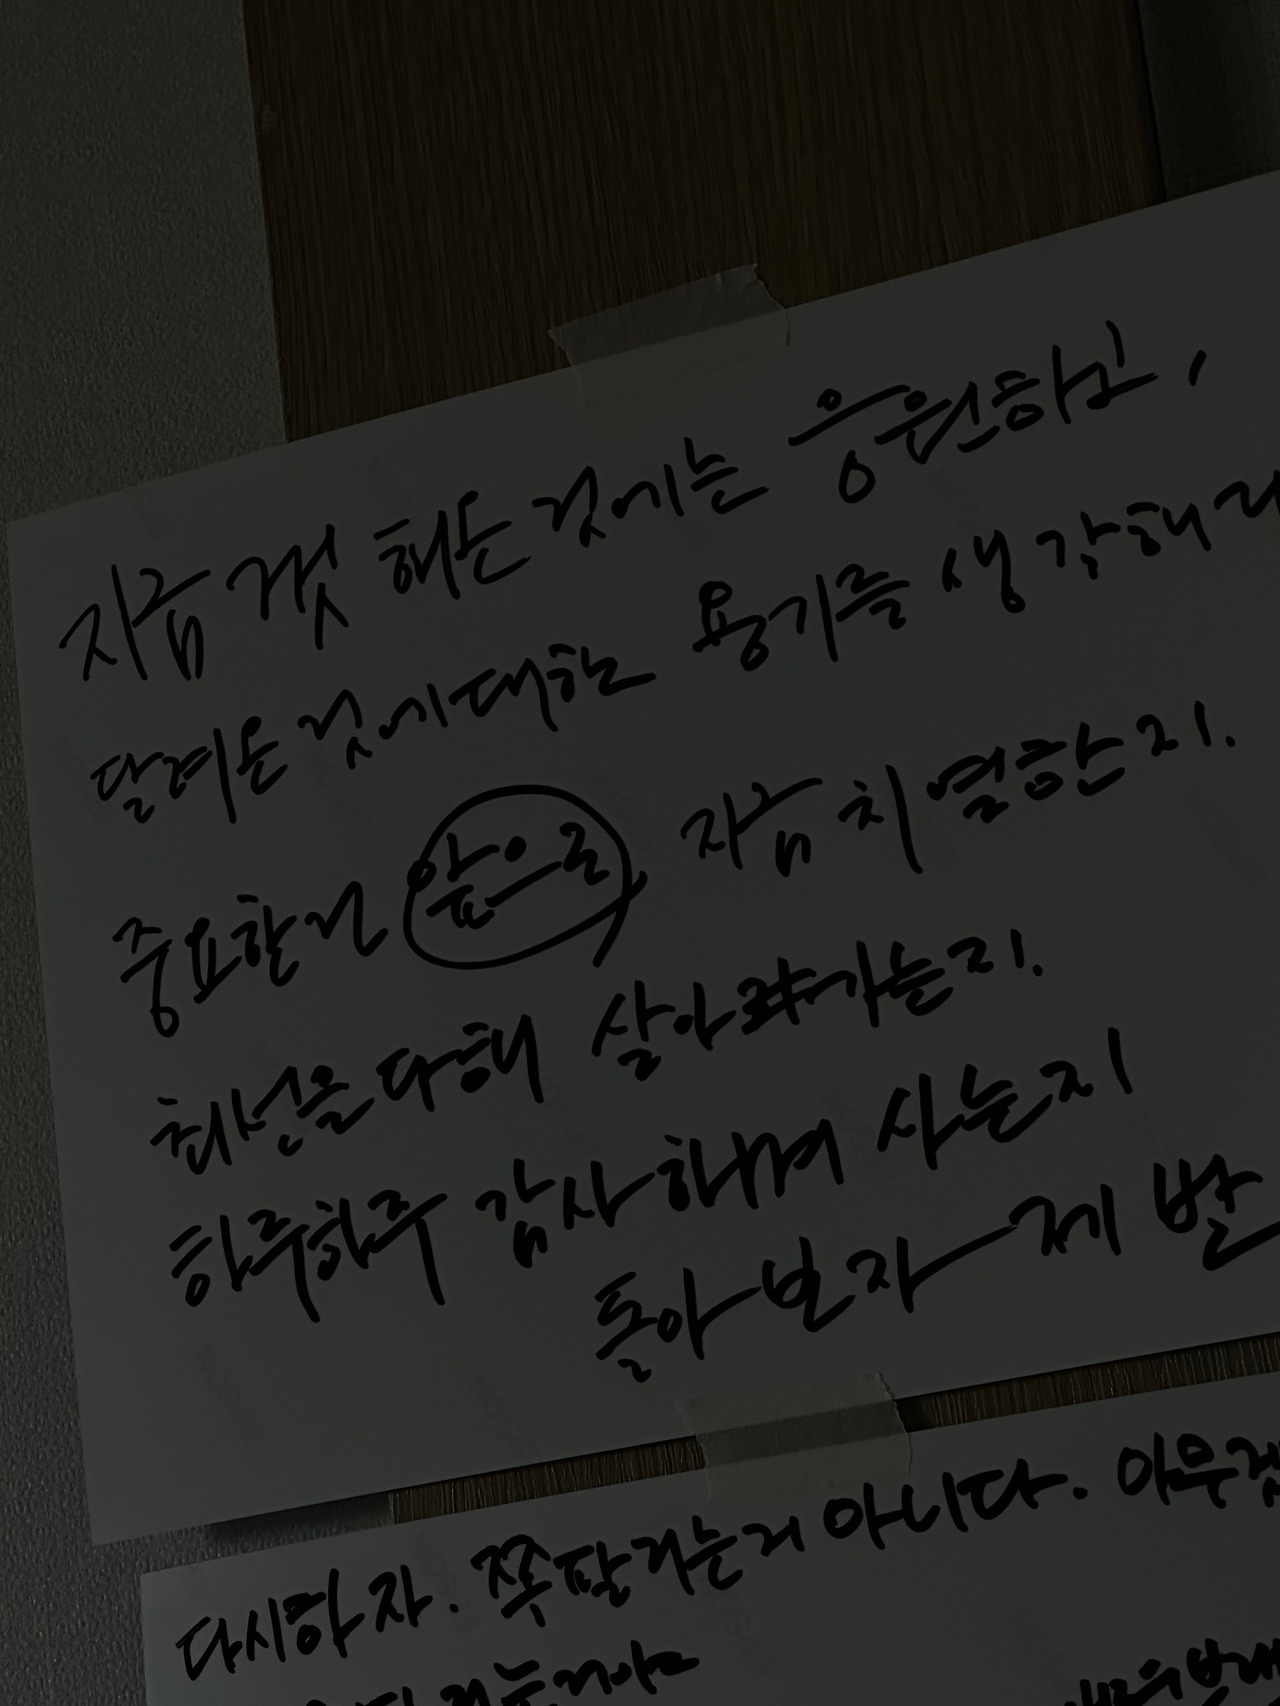 지금 껏 해온 것에는 응원하고,
달려온 것에 대한 용기를 생각해
중요한건 앞으로 지금 치열한지.
최선을 다해 살아 가는지.
하루하루 감사하며 사는지
돌아보자 제발
다시하자. 쪽팔리는거 아니다. 아무